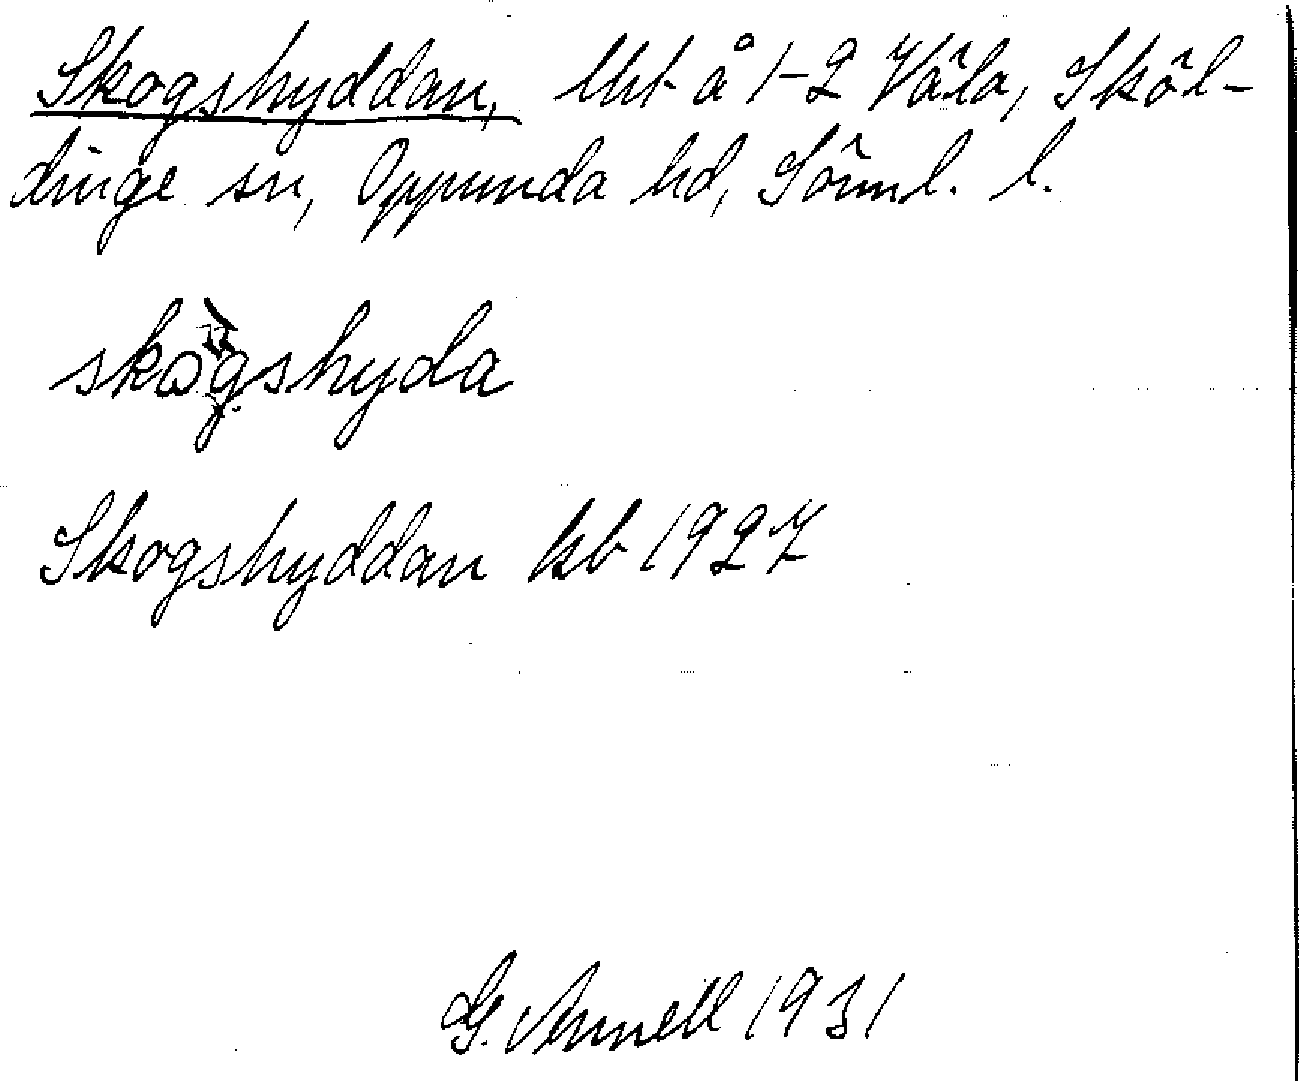 Skogshyddan, lht å 1-2 Våla, Sköl-
dinge sn, Oppunda hd, Sörml. l.
skògshyda
Skogshyddan kb 1927
G. Annell 1931